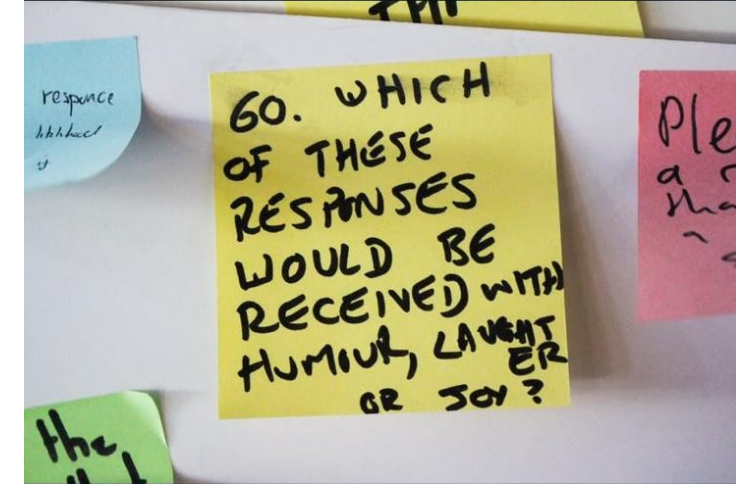 responce
60. WHICH
OF THESE
RESPONSES
WOULD BE
RECEIVED WITH
HUMOUR, LAUGHT
ER
OR JOY?
Ple
a
the